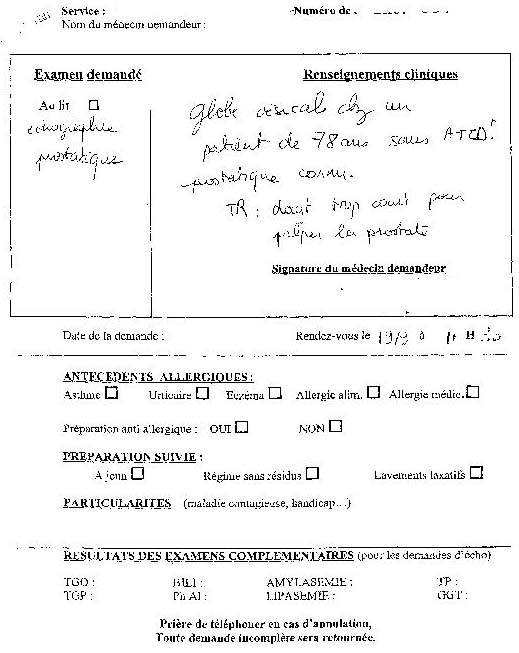 Service :
Numéro de
Nom du médecin demandeur :
Examen demandé
Renseignements cliniques
Au lit ☐
échographie
prostatique
Globe vésical chez un
patient de 78 ans sans ATCD
prostatique connu.
TR : doigt trop court pour
palper la prostate
Signature du médecin demandeur
Date de la demande :
Rendez-vous le 19/9 à H 30
ANTECEDENTS ALLERGIQUES :
Asthme ☐ Urticaire ☐ Eczéma ☐ Allergie alim. ☐ Allergie médic. ☐
Préparation anti allergique : OUI ☐ NON ☐
PREPARATION SUIVIE :
A jeun ☐ Régime sans résidus ☐ Lavements laxatifs ☐
PARTICULARITES (maladie contagieuse, handicap...)
RESULTATS DES EXAMENS COMPLEMENTAIRES (pour les demandes d'écho)
TGO : BILI : AMYLASEMIE : TP :
TGP : Ph Al : LIPASEMIE : GGT :
Prière de téléphoner en cas d'annulation,
Toute demande incomplète sera retournée.